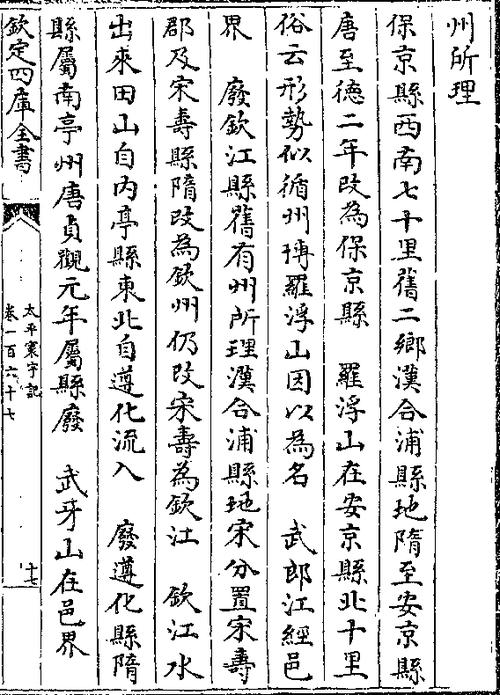 州所理
保京縣西南七十里舊二鄉漢合浦縣地隋至安京縣
唐至徳二年改為保京縣　羅浮山在安京縣北十里
俗云形勢似循州博羅浮山因以為名　武郎江經邑
界　廢欽江縣舊有州所理漢合浦縣地宋分置宋壽
郡及宋壽縣隋改為欽州仍改宋壽為欽江　欽江水
出來田山自内亭縣東北自遵化流入　廢遵化縣隋
縣屬南亭州唐貞觀元年屬縣廢　武牙山在邑界
欽定四庫全書
太平寰宇記
卷一百六十七
十七